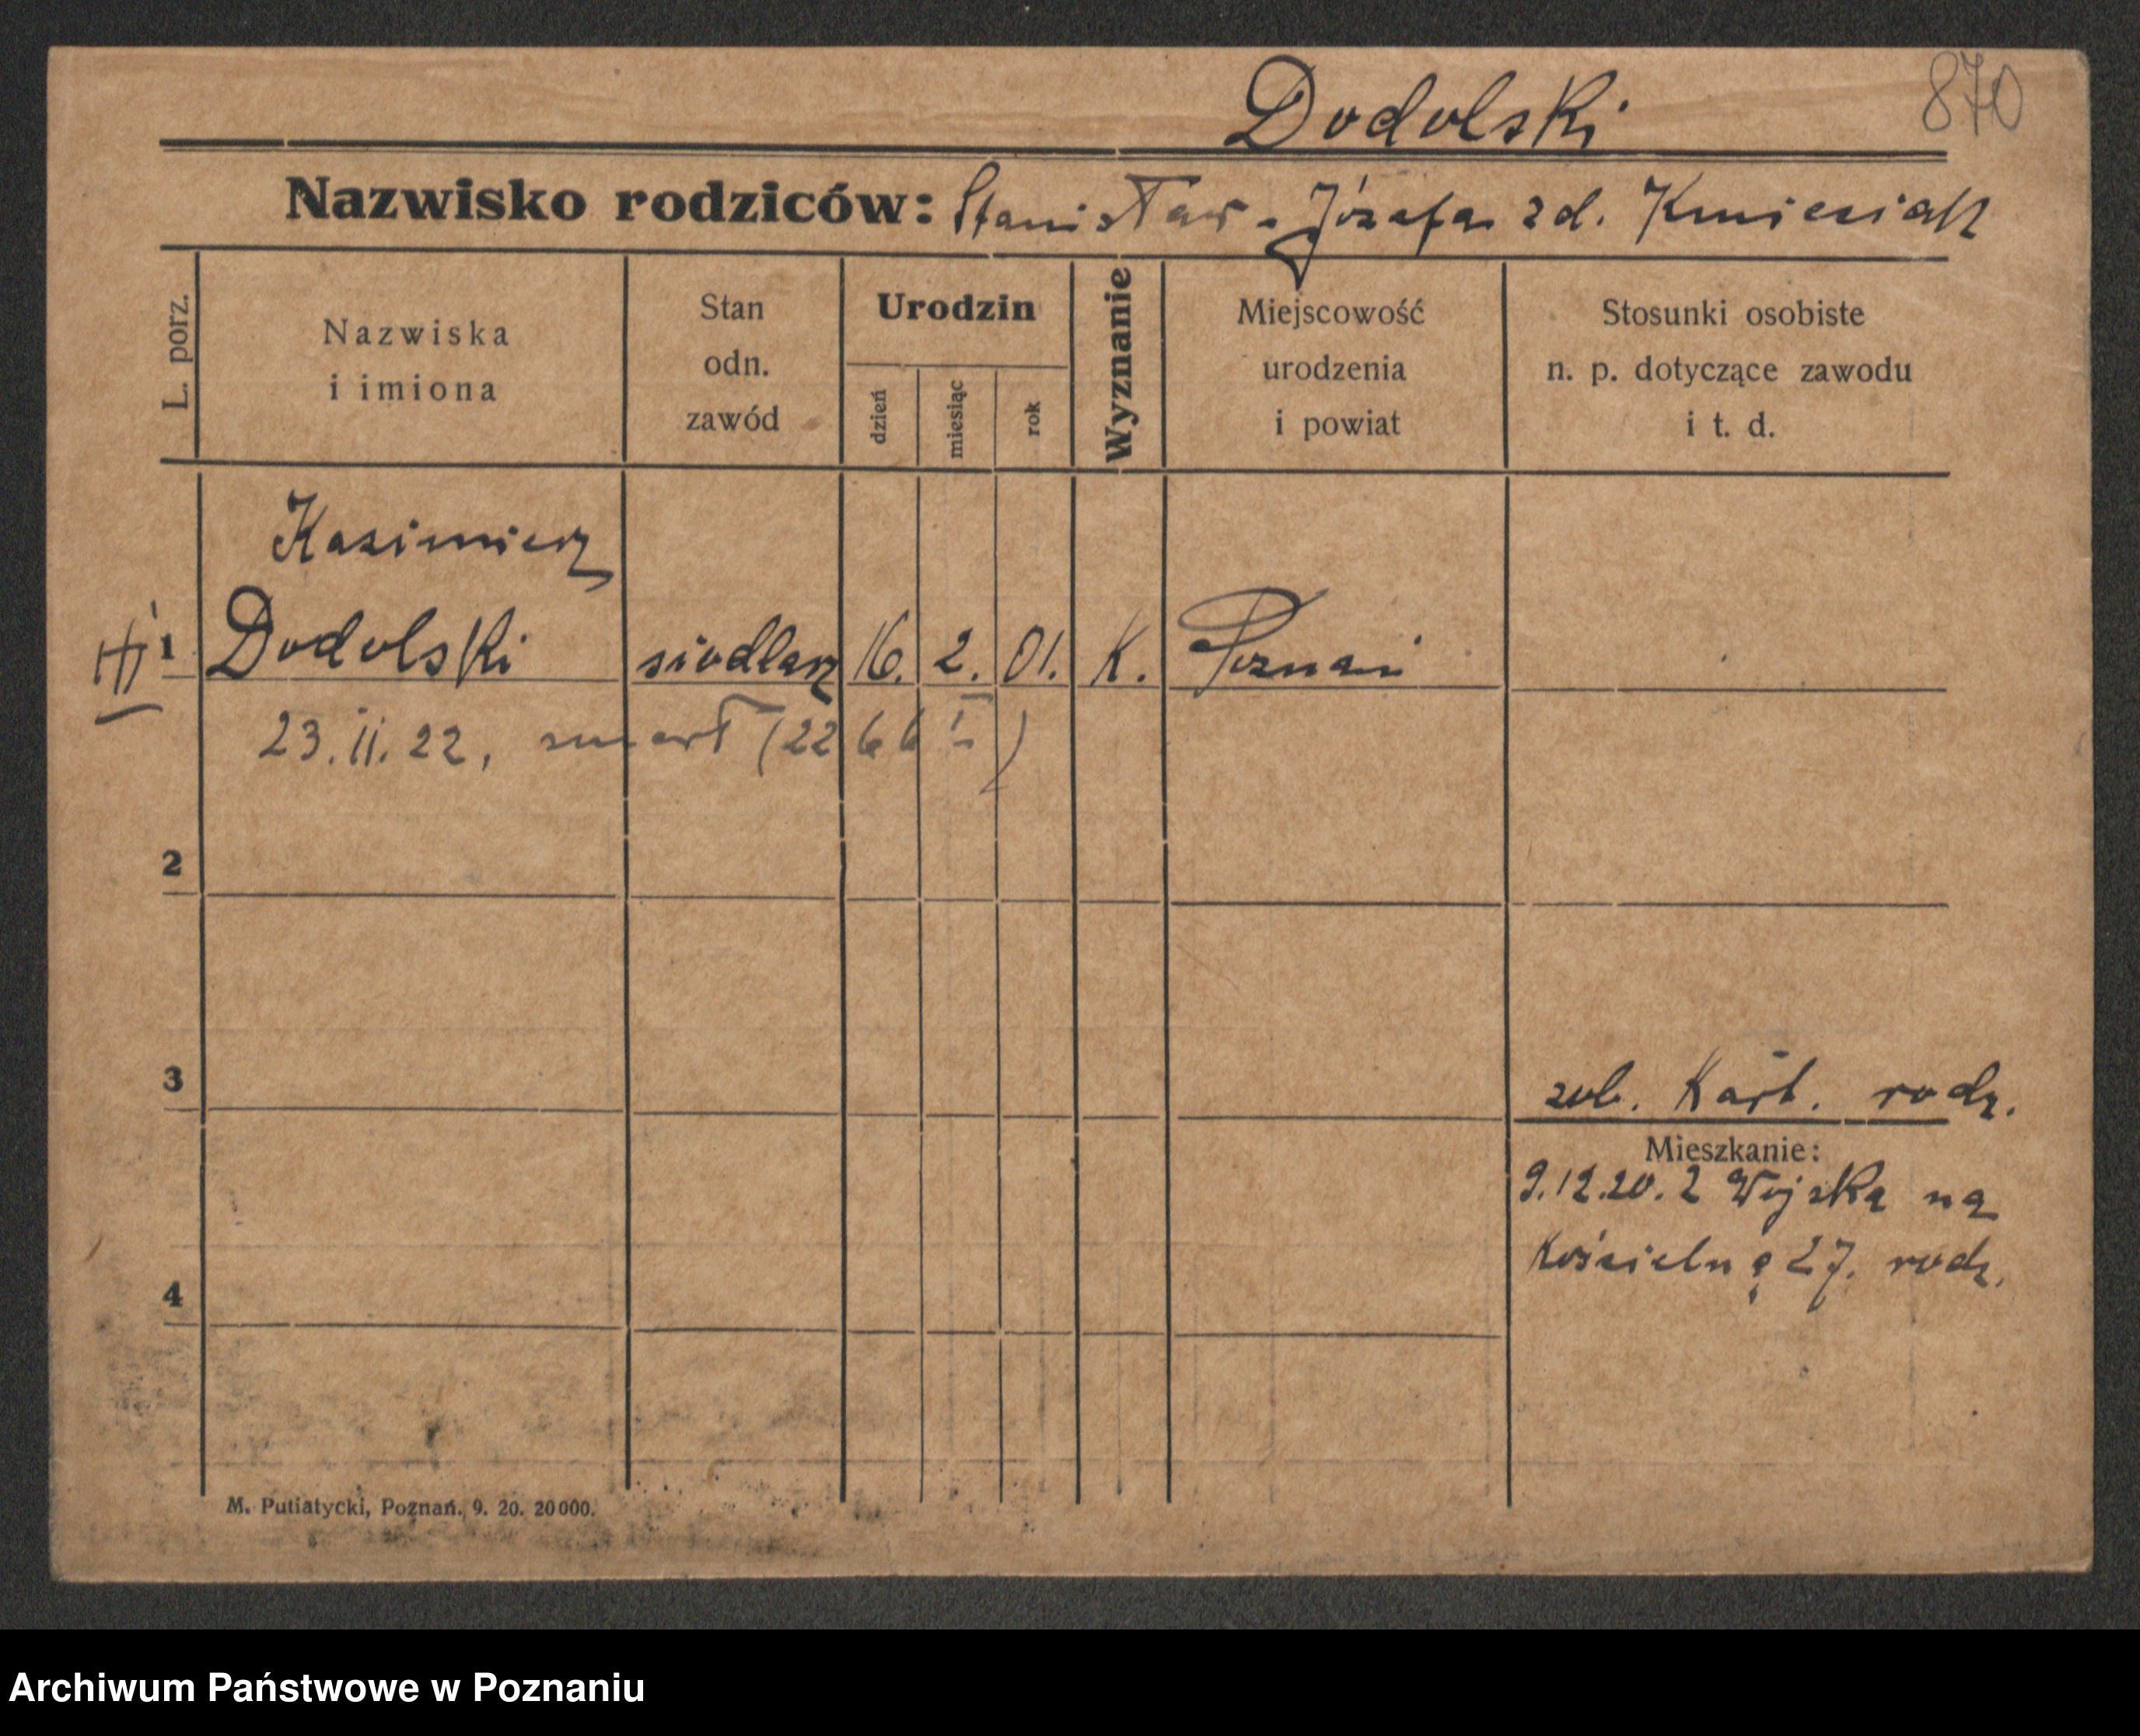 870
Dodolski
Nazwisko rodziców: Stanisław - Józefa zd. Kmieciak
L. porz.
Nazwiska
i imiona
Stan
odn.
zawód
Urodzin
dzień
miesiąc
rok
Wyznanie
Miejscowość
urodzenia
i powiat
Stosunki osobiste
n. p. dotyczące zawodu
i t. d.
Kazimierz
1 Dodolski siodlarz 16. 2. 01. K. Poznań
23.11.22, zmarł (2266 I)
2
3
zob. Kart. rodz.
Mieszkanie:
9.12.20. z Wojska na
Kościelną 27. rodz.
4
M. Putiatycki, Poznań. 9. 20. 20000.
Archiwum Państwowe w Poznaniu